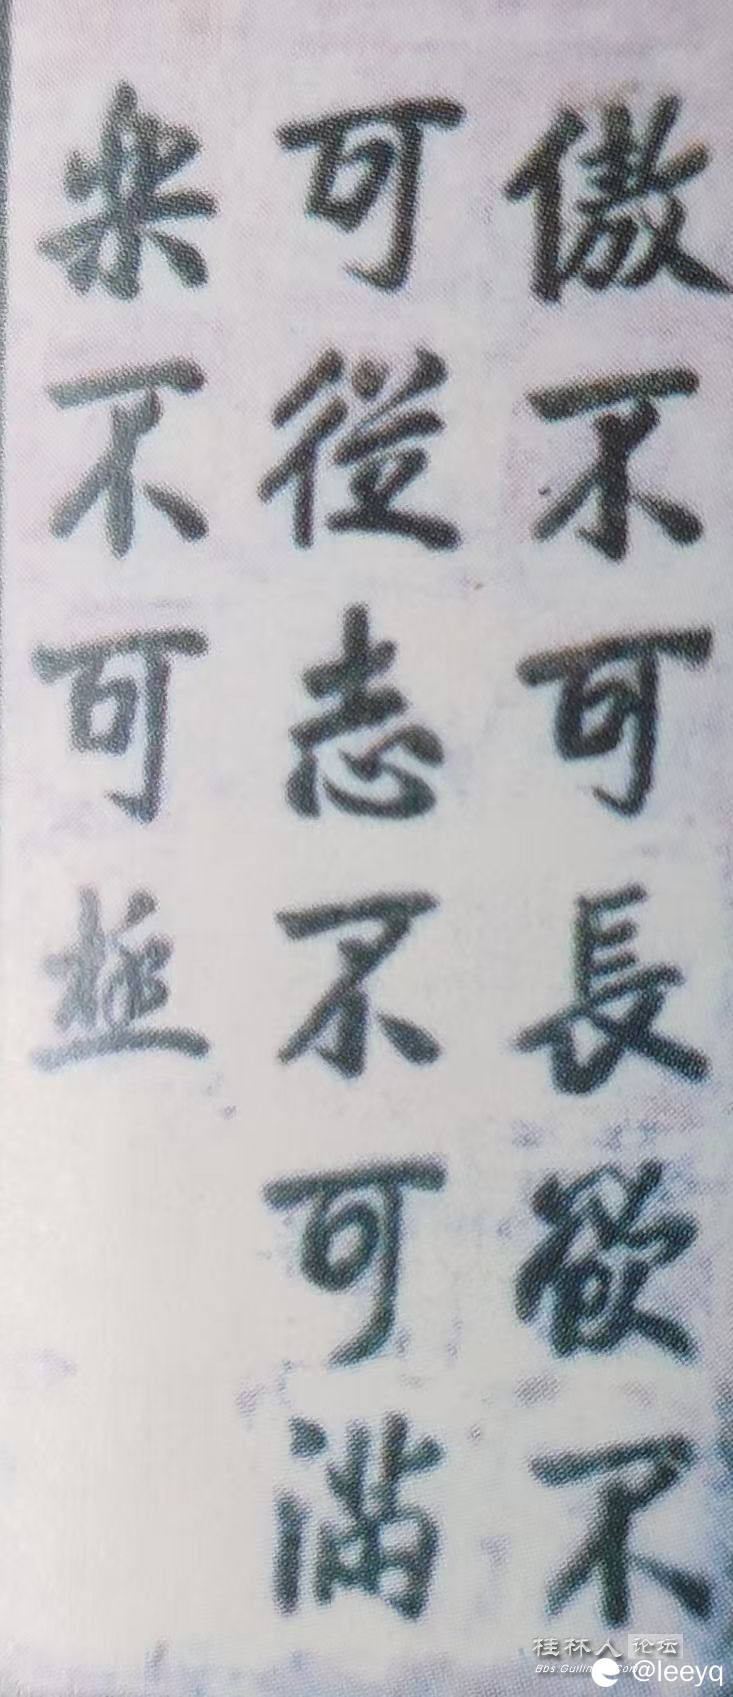 傲不可長欲不
可從志不可満
樂不可極
桂林人论坛
@leeyq